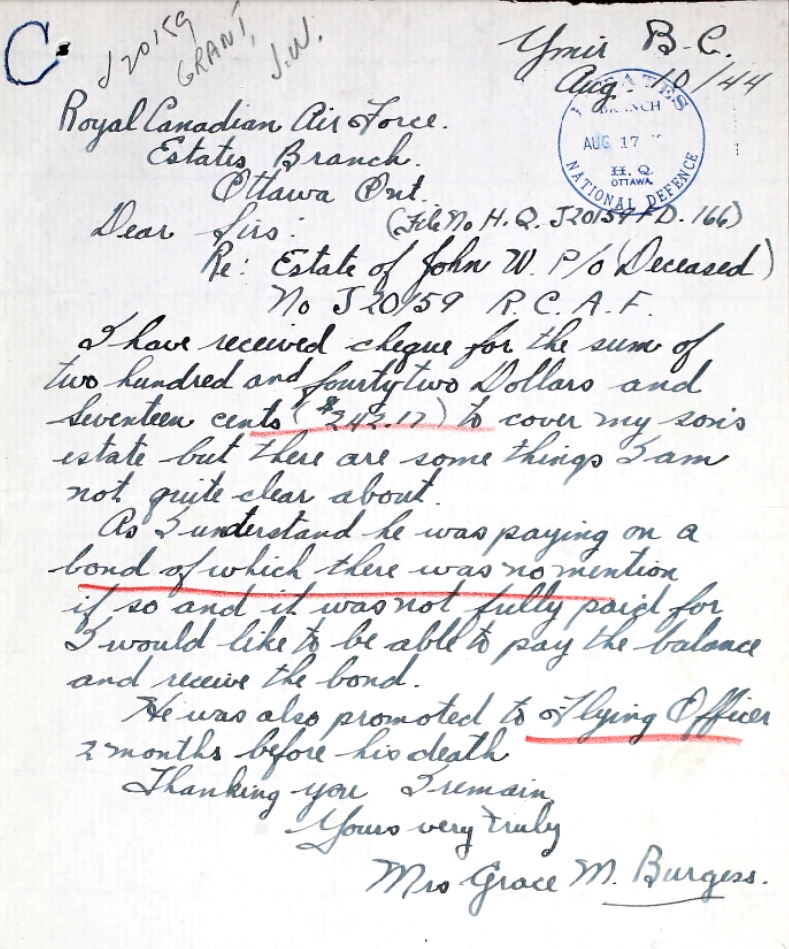 C.
J20159
GRANT,
J.W.
Ymir B-C.
Aug. 10/44
ESTATES
BRANCH
AUG 17
H. Q.
OTTAWA
NATIONAL DEFENCE
Royal Canadian Air Force.
Estates Branch.
Ottawa Ont.
Dear Sirs (File No H.Q. J20159 FD. 166)
Re: Estate of John W. P/o (Deceased)
No J20159 R.C.A.F.
I have received cheque for the sum of
two hundred and fourtytwo Dollars and
Seventeen cents ($242.17) to cover my son's
estate but there are some things I am
not quite clear about
As I understand he was paying on a
bond of which there was no mention
if so and it was not fully paid for
I would like to be able to pay the balance
and receive the bond.
He was also promoted to Flying Officer
2 months before his death
Thanking you I remain
Yours very truly
Mrs Grace M. Burgess.